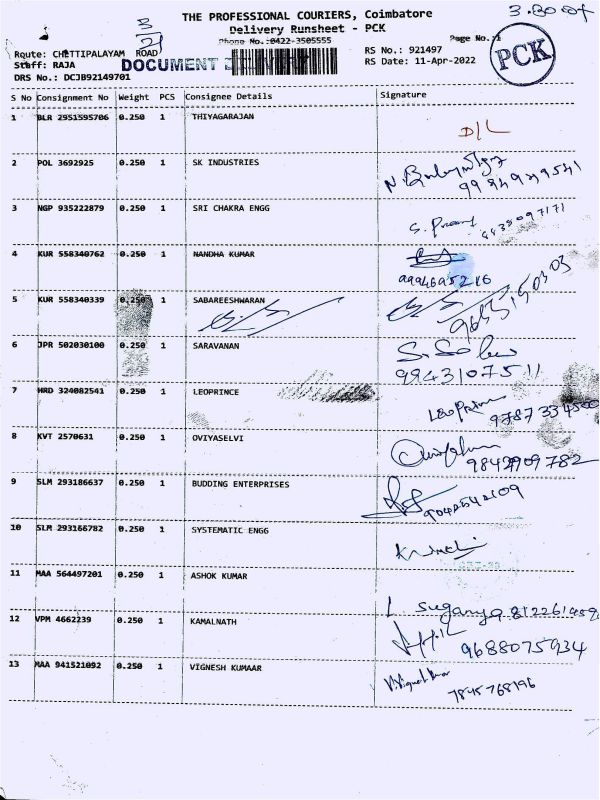 THE PROFESSIONAL COURIERS, Coimbatore
Delivery Runsheet - PCK
Phone No.:0422-3505555
Page No.:1
Route: CHETTIPALAYAM ROAD
RS No.: 921497
Staff: RAJA
DOCUMENT
RS Date: 11-Apr-2022
PCK
DRS No.: DCJB92149701
S No Consignment No Weight PCS Consignee Details Signature
1 BLR 2951595706 0.250 1 THIYAGARAJAN D/L
2 POL 3692925 0.250 1 SK INDUSTRIES
3 NGP 935222879 0.250 1 SRI CHAKRA ENGG
4 KUR 558340762 0.250 1 NANDHA KUMAR
9994695216
5 KUR 558340339 0.250 1 SABAREESHWARAN
6 JPR 502030100 0.250 1 SARAVANAN
9943107511
7 HRD 324082541 0.250 1 LEOPRINCE Leo Prince
8 KVT 2570631 0.250 1 OVIYASELVI
9842909782
9 SLM 293186637 0.250 1 BUDDING ENTERPRISES
10 SLM 293166782 0.250 1 SYSTEMATIC ENGG
11 MAA 564497201 0.250 1 ASHOK KUMAR
L suganya
12 VPM 4662239 0.250 1 KAMALNATH
9688075934
13 MAA 941521092 0.250 1 VIGNESH KUMAAR
7845768196